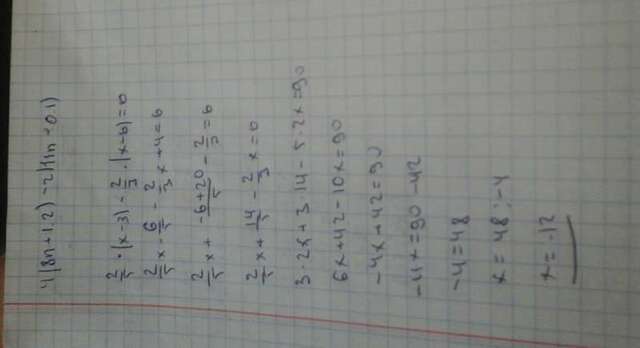 4(8n+1,2)-2(11n-0.1)
2/5·(x-3)-2/3·(x-6)=6
2/5x-6/5-2/3x+4=6
2/5x+(-6+20)/5-2/3=6
2/5x+14/5-2/3x=0
3·2x+3·14-5·2x=90
6x+42-10x=90
-4x+42=90
-4x=90-42
-4=48
x=48:-4
x=-12